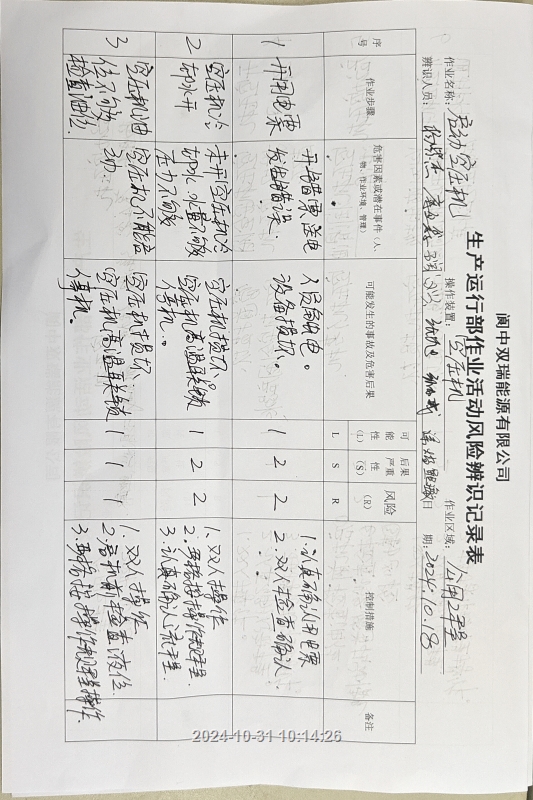 阆中双瑞能源有限公司
生产运行部作业活动风险辨识记录表
作业名称：启动空压机 操作装置：空压机 作业区域：公用工程
辨识人员： 日期：2024.10.18
序号 作业步骤 危害因素或潜在事件（人、物、作业环境、管理） 可能发生的事故及危害后果 可能性（L） 后果严重性（S） 风险（R） 控制措施 备注
L S R
1 开用电票 开错票，送电发生错误。 人员触电。设备损坏。 1 2 2 1.认真确认用电票
2.双人检查确认.
2 空压机冷却水开 未开空压机冷却水，水量不够压力不够 空压机损坏 空压机高温联锁停机。 1 2 2 1.双人操作
2.严格按操作规程.
3.认真确认流程.
3 空压机油位不够检查油位. 空压机不能启动. 空压机损坏 空压机高温联锁停机。 1 1 1 1.双人操作
2.启机前检查液位.
3.严格按操作规程操作.
2024-10-31 10:14:26